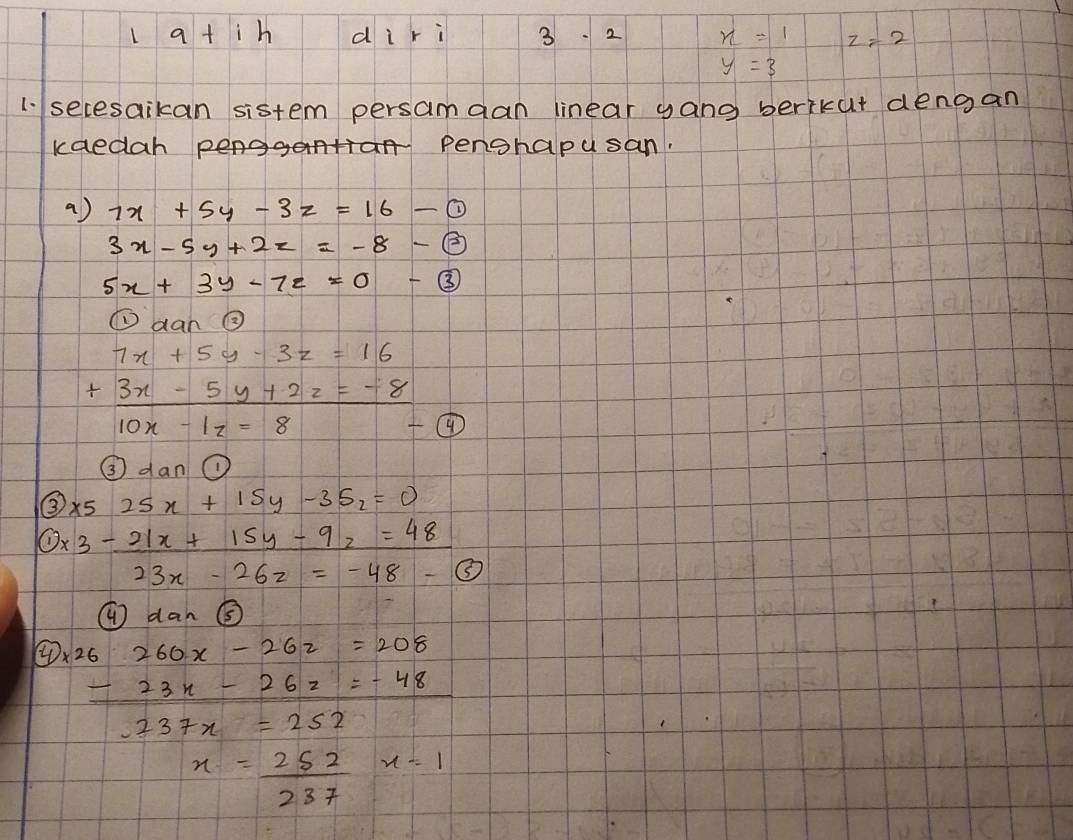 latih diri 3.2 x = 1 z = 2
y = 3
1. selesaikan sistem persamaan linear yang berikut dengan
kaedah penggantian Penghapusan.
a) 7x + 5y - 3z = 16 - ①
3x - 5y + 2z = -8 - ②
5x + 3y - 7z = 0 - ③
① dan ②
7x + 5y - 3z = 16
+ 3x - 5y + 2z = -8
10x - 1z = 8 - ④
③ dan ①
③x5 25x + 15y - 35z = 0
①x3 - 21x + 15y - 9z = 48
23x - 26z = -48 - ⑤
④ dan ⑤
④x26 260x - 26z = 208
- 23x - 26z = -48
237x = 252
x = 252 x = 1
237